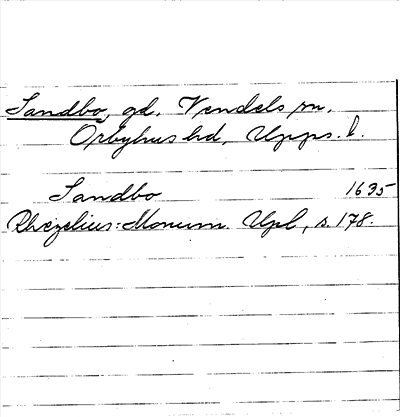 Sandbo, gd, Vendels sn,
Örbyhus hd, Upps. l.
Sandbo 1635
Rhezelius: Monum. Upl, s. 178.